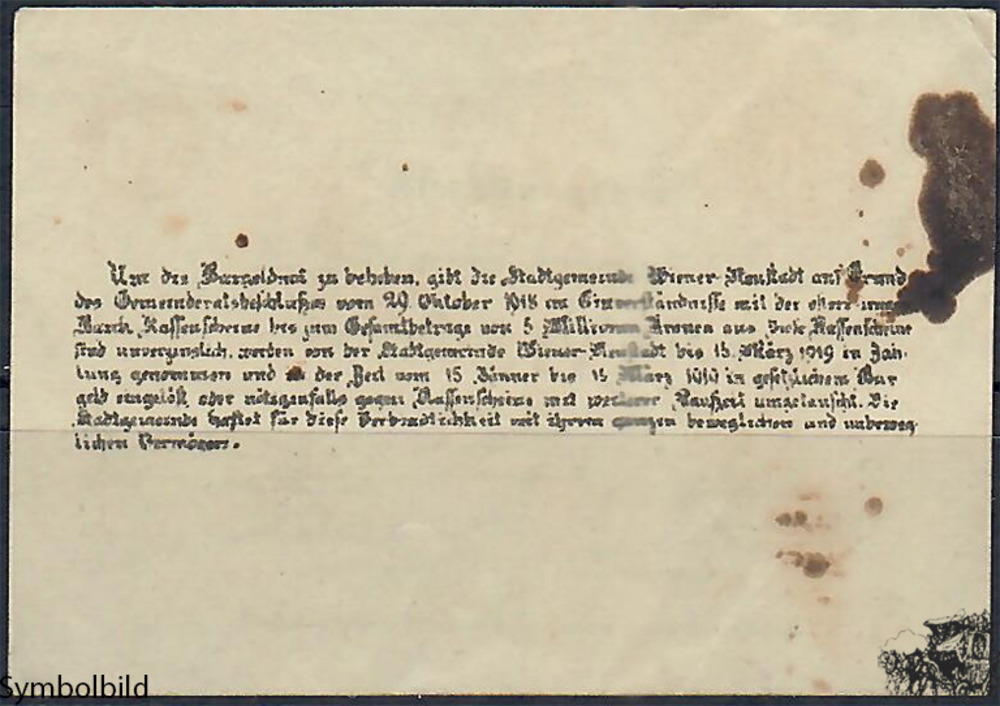 Um die Bargeldnot zu beheben, gibt die Stadtgemeinde Wiener-Neustadt auf Grund
des Gemeinderatsbeschlußes vom 29. Oktober 1918 im Einverständnisse mit der
Bank Kassenscheine bis zum Gesamtbetrage von 5 Millionen Kronen aus. Diese Kassenscheine
sind unverzinslich, werden von der Stadtgemeinde Wiener-Neustadt bis 15. März 1919 in Zah-
lung genommen und in der Zeit vom 15 Jänner bis 15 März 1919 in gesetzlichem Bar
geld eingelöst oder nötigenfalls gegen Kassenscheine mit weiterer Laufzeit umgetauscht. Die
Stadtgemeinde haftet für diese Verbindlichkeit mit ihrem ganzen beweglichen und unbeweg-
lichen Vermögen.
Symbolbild